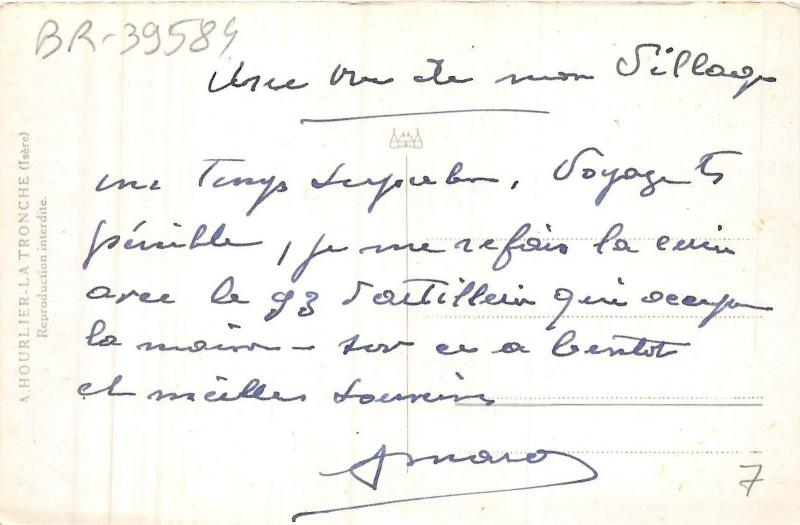 BR-39584
Une vue de mon village
un temps superbe, voyage très
pénible, je me refais la
avec le d'artillerie qui occupe
la maison - sur ce a bientot
et meilleurs souvenirs
7
A. HOURLIER-LA TRONCHE (Isère)
Reproduction interdite.